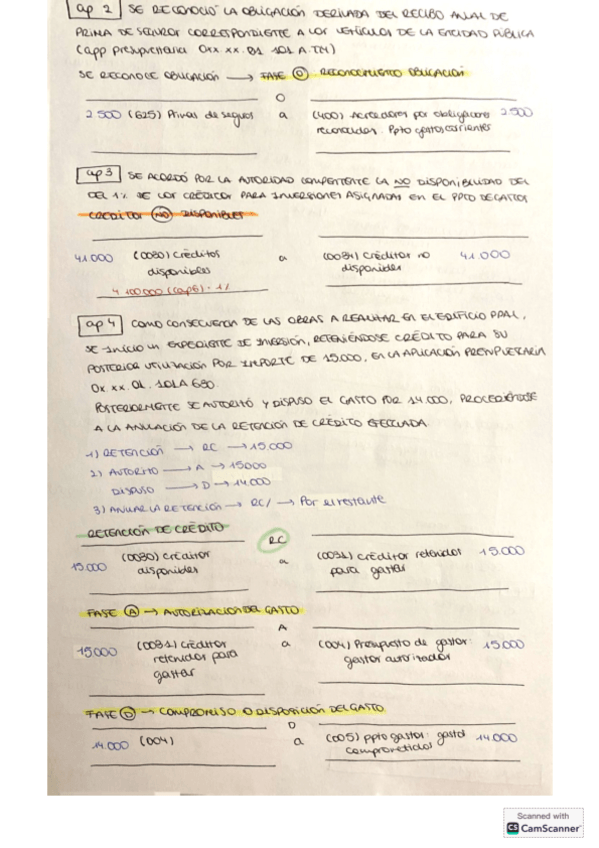 ap 2 SE RECONOCIÓ LA OBLIGACIÓN DERIVADA DEL RECIBO ANUAL DE
PRIMA DE SEGUROS CORRESPONDIENTE A LOS VEHÍCULOS DE LA ENTIDAD PÚBLICA
(app presupuestaria 0xx.xx.01 101 A.
SE RECONOCE OBLIGACIÓN → FASE O RECONOCIMIENTO OBLIGACIÓN
O
2 500 (625) Primas de seguros a (400) Acreedores por obligaciones 2 500
reconocidas. Ppto gastos corrientes
ap 3 SE ACORDÓ POR LA AUTORIDAD COMPETENTE LA NO DISPONIBILIDAD DEL
DEL 1% DE LOS CRÉDITOS PARA INVERSIONES ASIGNADAS EN EL PPTO DE GASTOS
CREDITOS NO DISPONIBLES
41.000 (0030) Créditos a (0034) Créditos no 41.000
disponibles disponibles
4 100 000 (cap 6) · 1%
ap 4 COMO CONSECUENCIA DE LAS OBRAS A REALIZAR EN EL EDIFICIO PPAL,
SE INICIO UN EXPEDIENTE DE INVERSIÓN, RETENIÉNDOSE CRÉDITO PARA SU
POSTERIOR UTILIZACIÓN POR IMPORTE DE 15.000, EN LA APLICACIÓN PRESUPUESTARIA
0x.xx.01.101A 630
POSTERIORMENTE SE AUTORIZÓ Y DISPUSO EL GASTO POR 14 000, PROCEDIÉNDOSE
A LA ANULACIÓN DE LA RETENCIÓN DE CRÉDITO EFECTUADA
1) RETENCIÓN → RC → 15.000
2) AUTORIZO → A → 15000
DISPUSO → D → 14.000
3) ANULAR LA RETENCIÓN → RC/ → Por el restante
RETENCIÓN DE CRÉDITO
RC
15.000 (0030) Créditos a (0031) Créditos retenidos 15.000
disponibles para gastar
FASE A → AUTORIZACION DEL GASTO
A
15.000 (0031) Créditos a (004) Presupuesto de gastos: 15.000
retenidos para gastos autorizados
gastar
FASE D → COMPROMISO O DISPOSICIÓN DEL GASTO
D
14.000 (004) a (005) ppto gastos: gastos 14.000
comprometidos
Scanned with
CS CamScanner